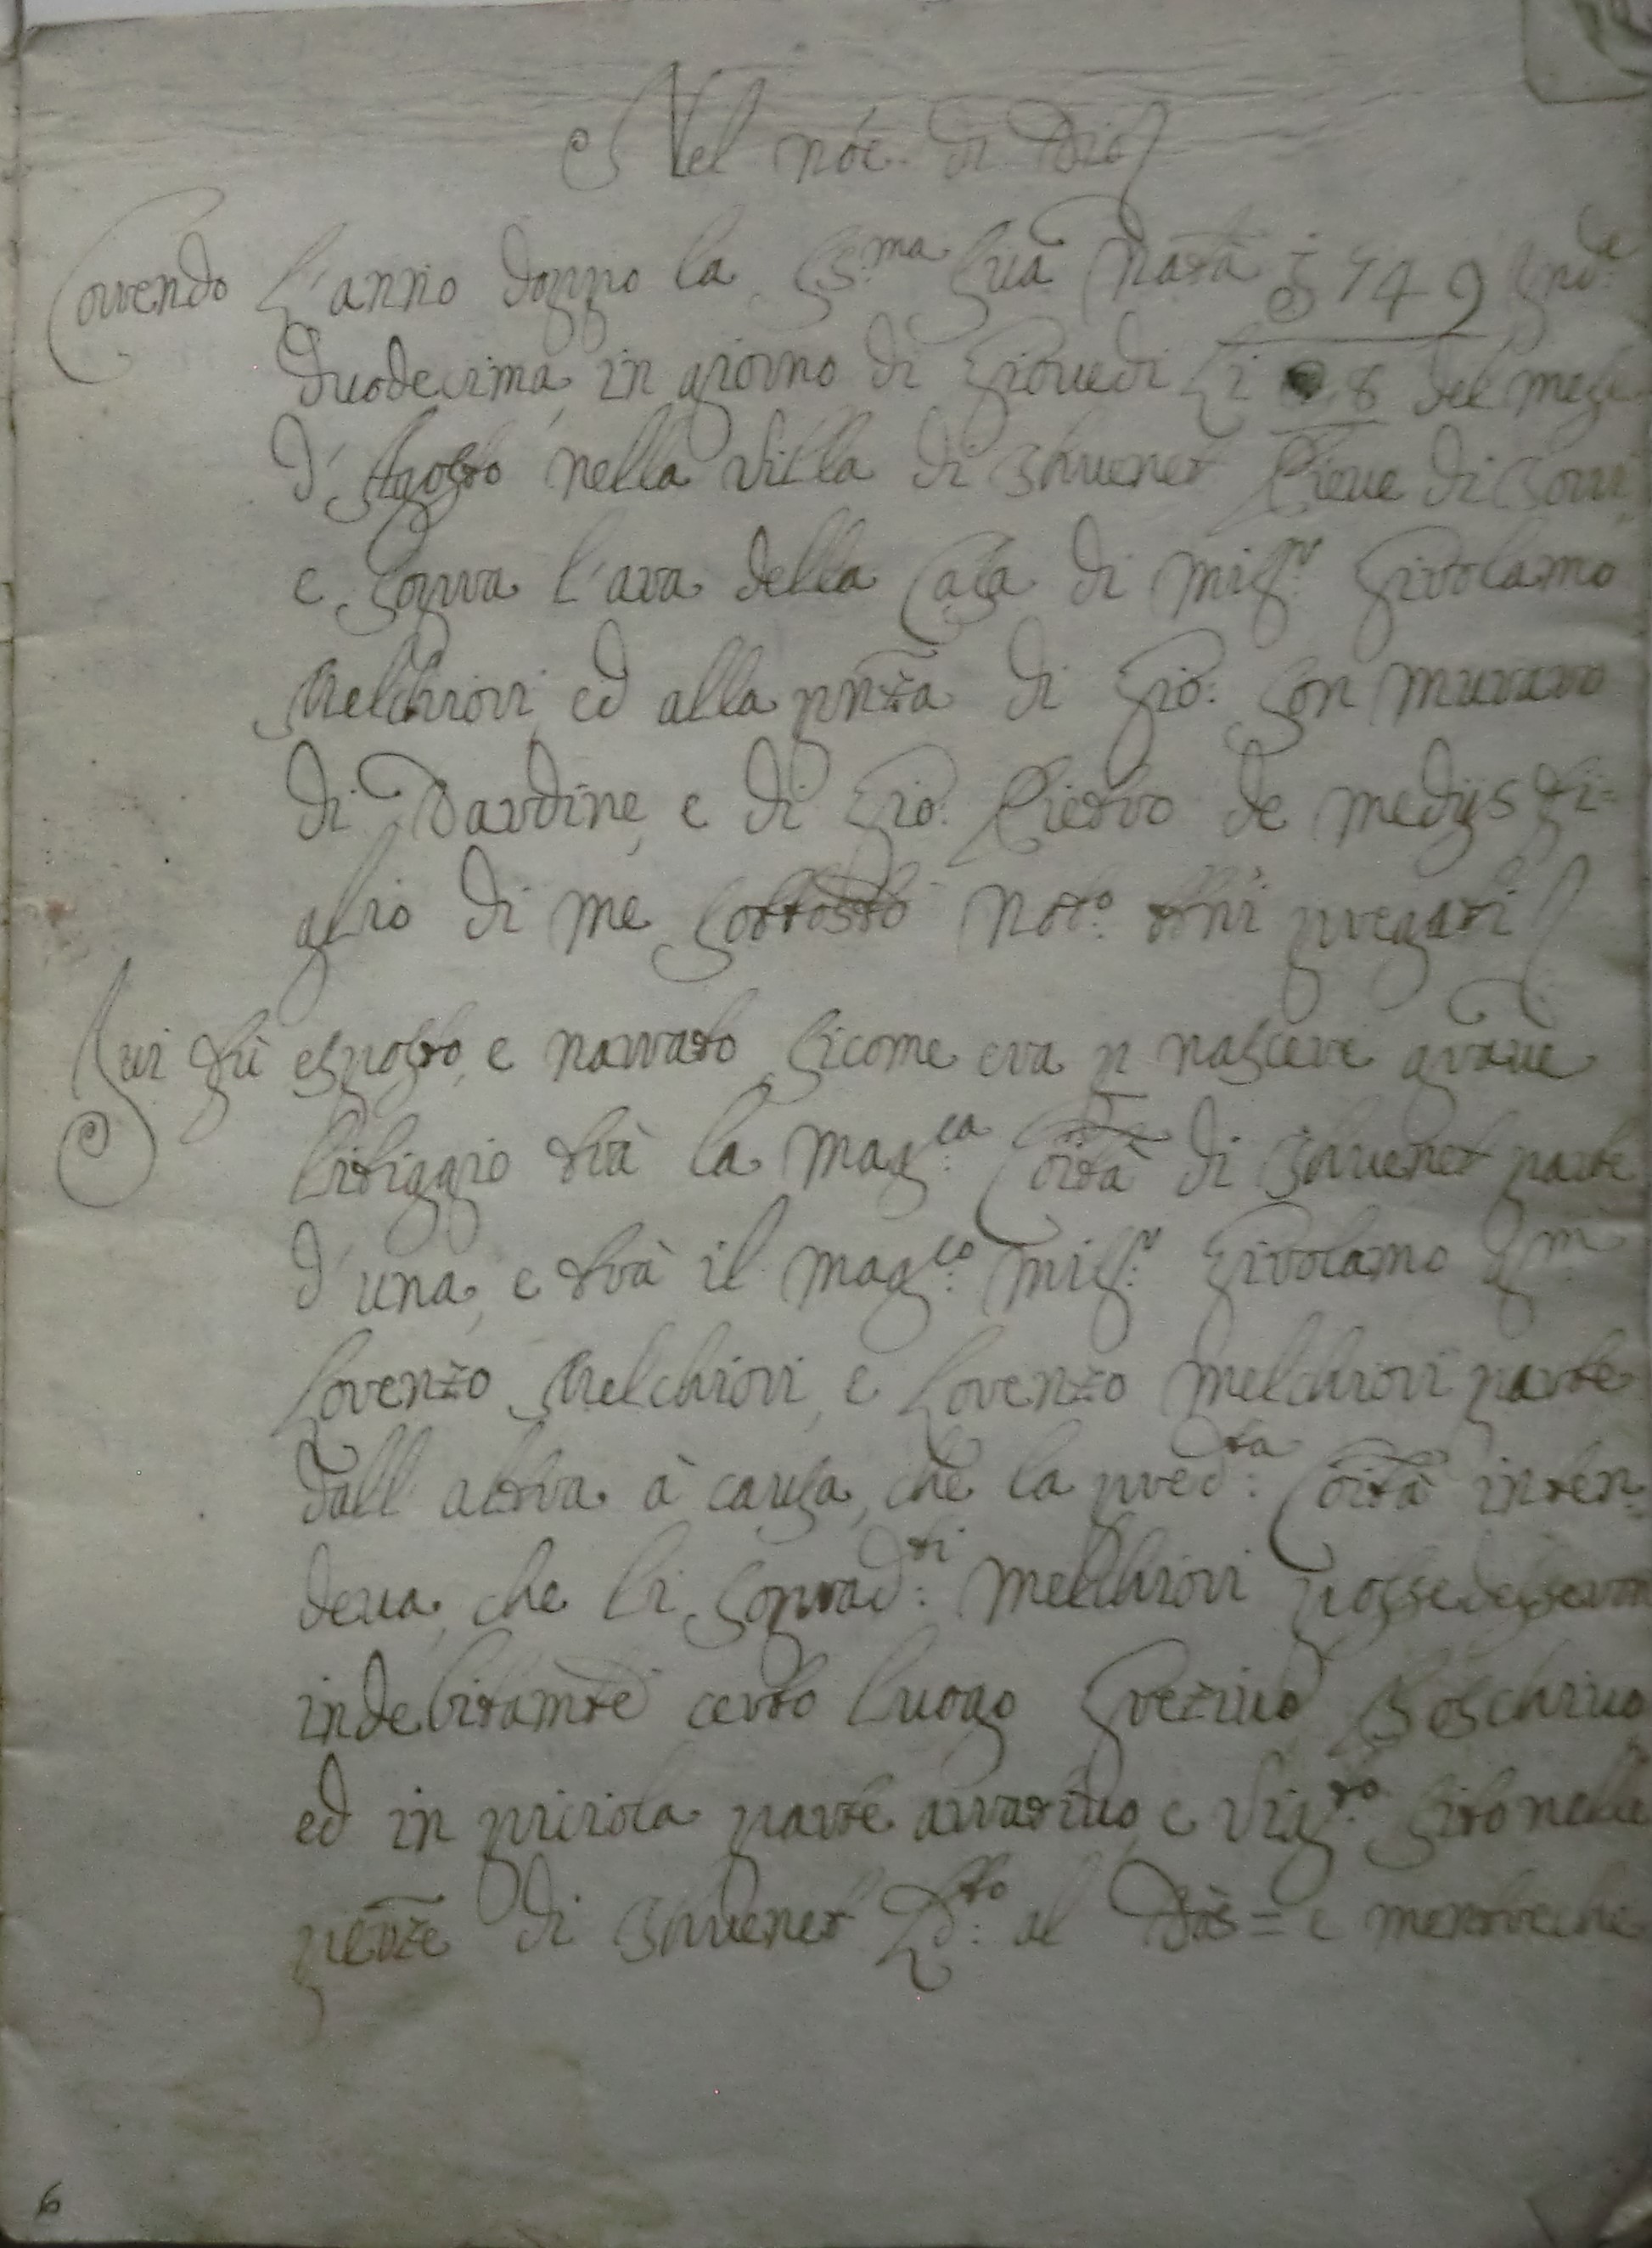 Nel nóe. di Dio
Correndo L'anno doppo la S.ma Sua Natà 1749 Ind.e
Duodecima, in giorno di Giovedi Li 28 del mese
d'Agosto nella Villa di Thuenet Pieve di
e sopra l'ara della Casa di Mis.r Girolamo
Melchiori, ed alla pñza di Gio: Son Muraro
di Dardine, e di Gio: Pietro de Medijs fi=
glio di me sottostõ Not.o ttñi pregati
Ivi fù esposto, e narrato sicome era p nascere grave
Litiggio trà la Mag.ca Cõità di Thuenet parte
d'una, e trà il Mag.co Mis.r Girolamo qm
Lorenzo Melchiori, e Lorenzo Melchiori parte
dall altra à causa, che la pred.ta Cõità inten=
deva, che li soprad.ti Melchiori possedessero
indebitamte certo Luogo Grezivo Boschivo
ed in picciola parte arrativo, e Vig.to sito nelle
pertze di Thuenet d.to al Dòs = e mentre che
6